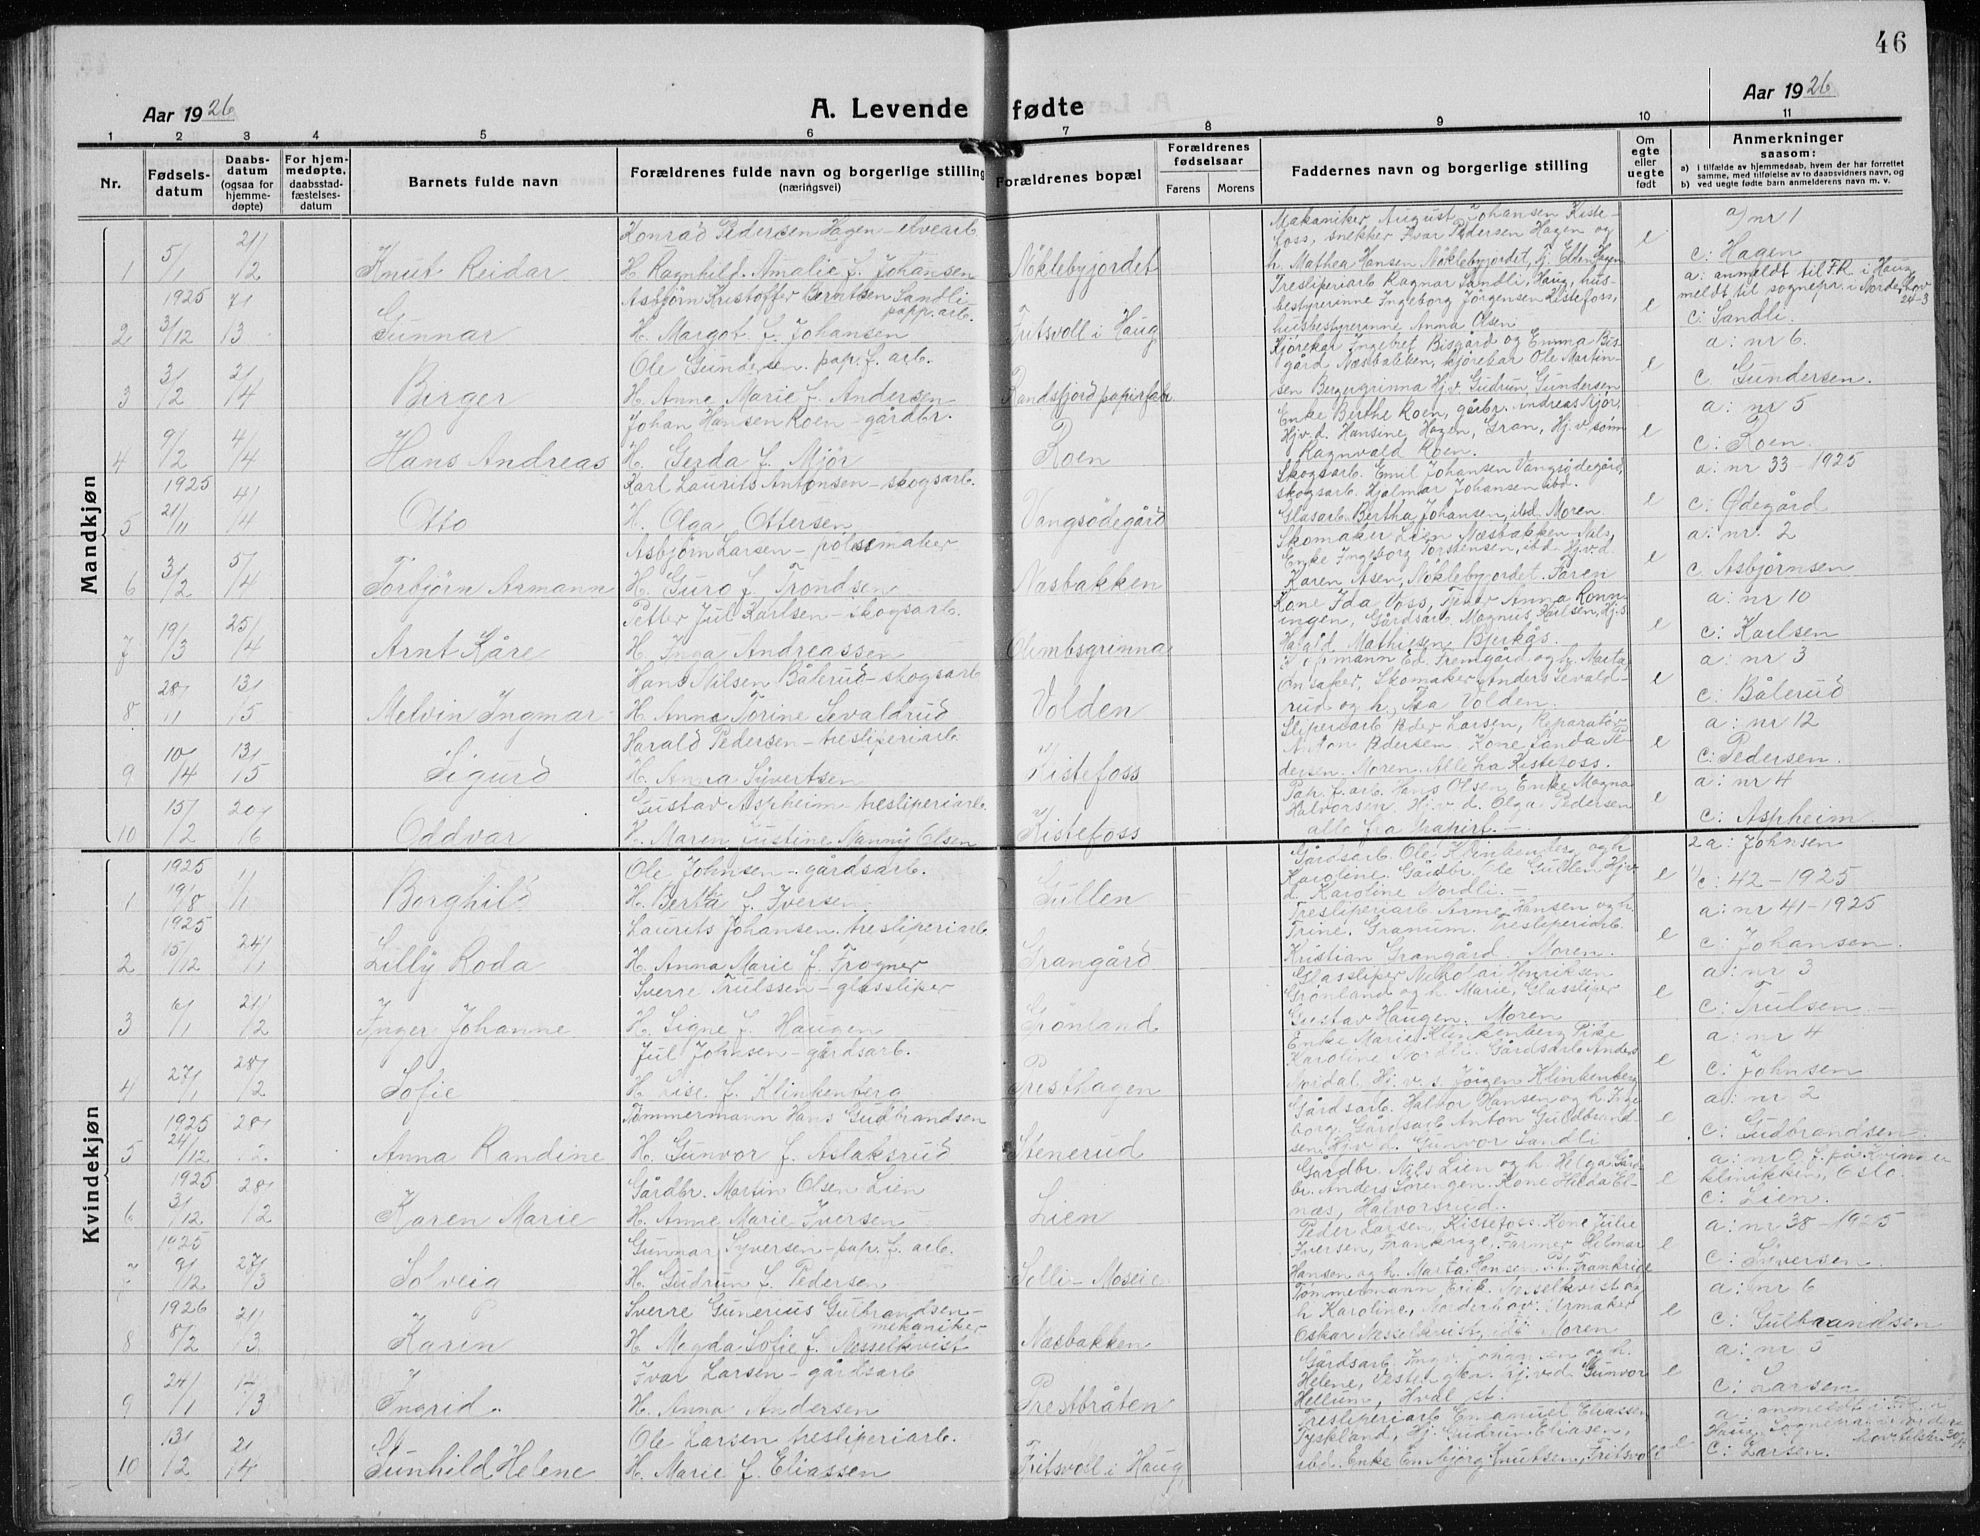 46
Aar 1926
A. Levende fødte
Aar 1926
1 2 3 4 5 6 7 8 9 10 11
Nr.
Fødsels-
datum
Daabs-
datum
(ogsaa for
hjemme-
døpte)
For hjem-
medøpte,
daabsstad-
fæstelses-
datum
Barnets fulde navn
Forældrenes fulde navn og borgerlige stilling
(næringsvei)
Forældrenes bopæl
Forældrenes
fødselsaar
Farens
Morens
Faddernes navn og borgerlige stilling
Om
egte
eller
uegte
født
Anmerkninger
saasom:
a) i tilfælde av hjemmedaab, hvem der har forrettet
samme, med tilføielse av to daabsvidners navn, og
b) ved uegte fødte barn anmelderens navn m. v.
Mandkjøn
1 5/1 21/2 Knut Reidar
Konrad Pedersen Hagen - elvearb.
H. Ragnhild Amalie f. Johansen
Nöklebyjordet
Mekaniker August Johansen Kiste-
foss, snekker Ivar Pedersen Hagen og
h. Mathea Hansen Nöklebyjordet, Hj. Ellen Hagen
e
a) nr 1
c: Hagen
2 1925 3/12 7/3 Gunnar
Asbjörn Kristoffer Berntsen Sandli
papp. arb.
H. Margot f. Johansen
Fritsvoll i Haug
Tresliperiarb Ragnar Sandli, Haug, hus-
bestyrerinne Ingeborg Jörgensen Kistefoss,
husbestyrerinne Anna Olsen
e
a: anmeldt til F.R. i Haug
meldt til sognepr. i Norderhov
24-3
c: Sandli.
3 3/2 2/4 Birger
Ole Gundersen. pap. f. arb.
H. Anne Marie f. Andersen
Randsfjord papirfab
Kjörekar Ingebret Bisgård og Emma Bis-
gård Næsbakken, kjörekar Ole Martin-
sen Bergergrinna Hj.v. Gudrun Gundersen
e
a: nr 6.
c Gundersen.
4 9/2 4/4 Hans Andreas
Johan Hansen Roen - gårdbr.
H. Gerda f. Mjör
Roen
Enke Berthe Roen, gårbr. Andreas Mjör,
Hjv. d. Hansine Hagen, Gran, Hj. v sönn
Ragnvald Roen.
e
a: nr 5
c: Roen.
5 1925 21/11 4/4 Otto
Karl Laurits Antonsen - skogsarb.
H. Olga Ottersen
Vangsödegård
Skogsarb. Emil Johansen Vangsödegård,
skogsarb. Hjalmar Johansen ibd.
Glasarb. Bertha Johansen ibd. Moren
e
a: nr 33 - 1925
c: Ødegård
6 3/2 5/4 Torbjörn Armann
Asbjörn Larsen - pölsemaker
H. Guro f. Trondsen
Næsbakken
Skomaker Lien Næsbakken Nils,
Enke Ingeborg Torstensen, ibd. Hj.v.d.
Karen Åsen, Nöklebyjordet. Faren
e
a: nr. 2
c Asbjørnsen
7 19/3 25/4 Arnt Kåre
Petter Jul Karlsen - skogsarb.
H. Inga Andreassen
Olimbsgrinna
Kone Ida Voss, Anna Rönn-
ingen, Gårdsarb. Magnus Karlsen, Hj. s.
Harald Mathiesen Bjerkås.
e
a: nr 10
c: Karlsen
8 28/11 13/5 Melvin Ingmar
Hans Nilsen Bålerud - skogsarb
H. Anna Torine Sevaldrud
Volden
Ed. Fremgård og h. Marta,
Onsaker, Skomaker Anders Sevald-
rud og h. Åsa Volden.
e
a: nr 3
c: Bålerud
9 10/4 13/5 Sigurd
Harald Pedersen - tresliperiarb
H. Anna Syvertsen
Kistefoss
Sliperiarb Peder Larsen, Reparatör
Anton Pedersen. Kone Landa Pe-
dersen. Moren. Alle fra Kistefoss.
e
a: nr 12
c: Pedersen.
10 15/2 20/6 Oddvar
Gustav Aspheim tresliperiarb.
H. Maren Justine Nanny Olsen
Kistefoss
Pap. f. arb. Hans Olsen Enke Magna
Halvorsen. Hj. v. d. Olga Pedersen
alle fra papirf. -
e
a: nr 4
c: Aspheim
Kvindekjøn
1 1925 19/8 1/1 Borghild
Ole Johnsen - gårdsarb.
H. Berta f. Iversen
Gullen
Gårdsarb. Ole Klinkenberg og h
Karoline. Gårdbr. Ole Gullen Hjv
d. Karoline Nordli. -
e
2a: Johnsen
c: 42 - 1925
2 1925 15/12 24/1 Lilly Roda
Laurits Johansen. tresliperiarb
H. Anna Marie f. Frogner
Grangård
Tresliperiarb. Arne Hansen og h.
Trine. Granum. Tresliperiarb.
Kristian Grangård. Moren.
e
a: nr 41 - 1925
c: Johansen.
3 6/1 21/2 Inger Johanne
Sverre Trulssen - glassliper
H. Signe f. Haugen
Grönland
Glassliper Nikolai Henriksen
Grönland og h. Marie, Glassliper
Gustav Haugen. Moren
e
a: nr 3
c: Trulsen -
4 27/1 28/2 Sofie
Jul Johnsen - gårdsarb.
H. Lise f. Klinkenberg
Presthagen
Enke Marie Klinkenberg Pike
Karoline Nordli. Gårdsarb Anders
Nordal, Hj. v. s. Jörgen Klinkenberg
e
a: nr 4
c: Johnsen
5 1925 24/12 28/2 Anna Randine
Tömmermann Hans Gudbrandsen
H. Gunvor f. Aslaksrud
Stenerud
Gårdsarb. Halvor Hansen og h. Inge
borg. Gårdsarb Anton Gudbrand-
sen, Hjv d. Gunvor Sandli
e
a: nr 2
c: Gudbrandsen.
6 1925 3/12 28/2 Karen Marie
Gårdbr. Martin Olsen Lien
H. Anne Marie Iversen
Lien
Gårdbr. Nils Lien og h. Helga Gård-
br. Anders Sörengen. Kone Hilda Ei-
næs, Halvorsrud.
e
a: nr 0 f. på Kvinne
klinikken, Oslo.
c: Lien.
7 1925 9/12 27/3 Solveig
Gunnar Syversen - pap. f. arb.
H. Gudrun f. Pedersen
Solli - Moseie
Peder Larsen, Kistefoss. Kone Julie
Iversen, Frankrige, Farmer Hilmar
Hansen og h. Marta Hansen Frankrige
e
a: nr 38 - 1925
c: Syversen
8 1926 8/2 21/3 Karin
Sverre Gunerius Gulbrandsen -
mekaniker
H. Magda Sofie f. Nesselkvist
Næsbakken
Tömmermann, Erik Nesselkvist og
h Karoline, Norderhov. Urmaker
Oskar Nesselkvist, ibd Moren
e
a: nr 6
c: Gulbrandsen
9 24/1 14/3 Ingrid.
Ivar Larsen - gårdsarb
H. Anna Andersen
Prestbråten
Gårdsarb. Ingv. Johansen og h.
Helene, Hj.v.d. Gunvor
Hellum, Hval st.
e
a: nr 5
c: Larsen
10 13/2 2/4 Gunhild Helene
Ole Larsen tresliperiarb.
H. Marie f. Eliassen
Fritsvoll i Haug
Tresliperiarb Emanuel Eliassen
Tyskland, Hj. Gudrun Eliasen,
ibd. Enke Embjörg Knutsen, Fritsvoll
e
a: anmeldt i F.R. i
Haug.
c: Larsen.